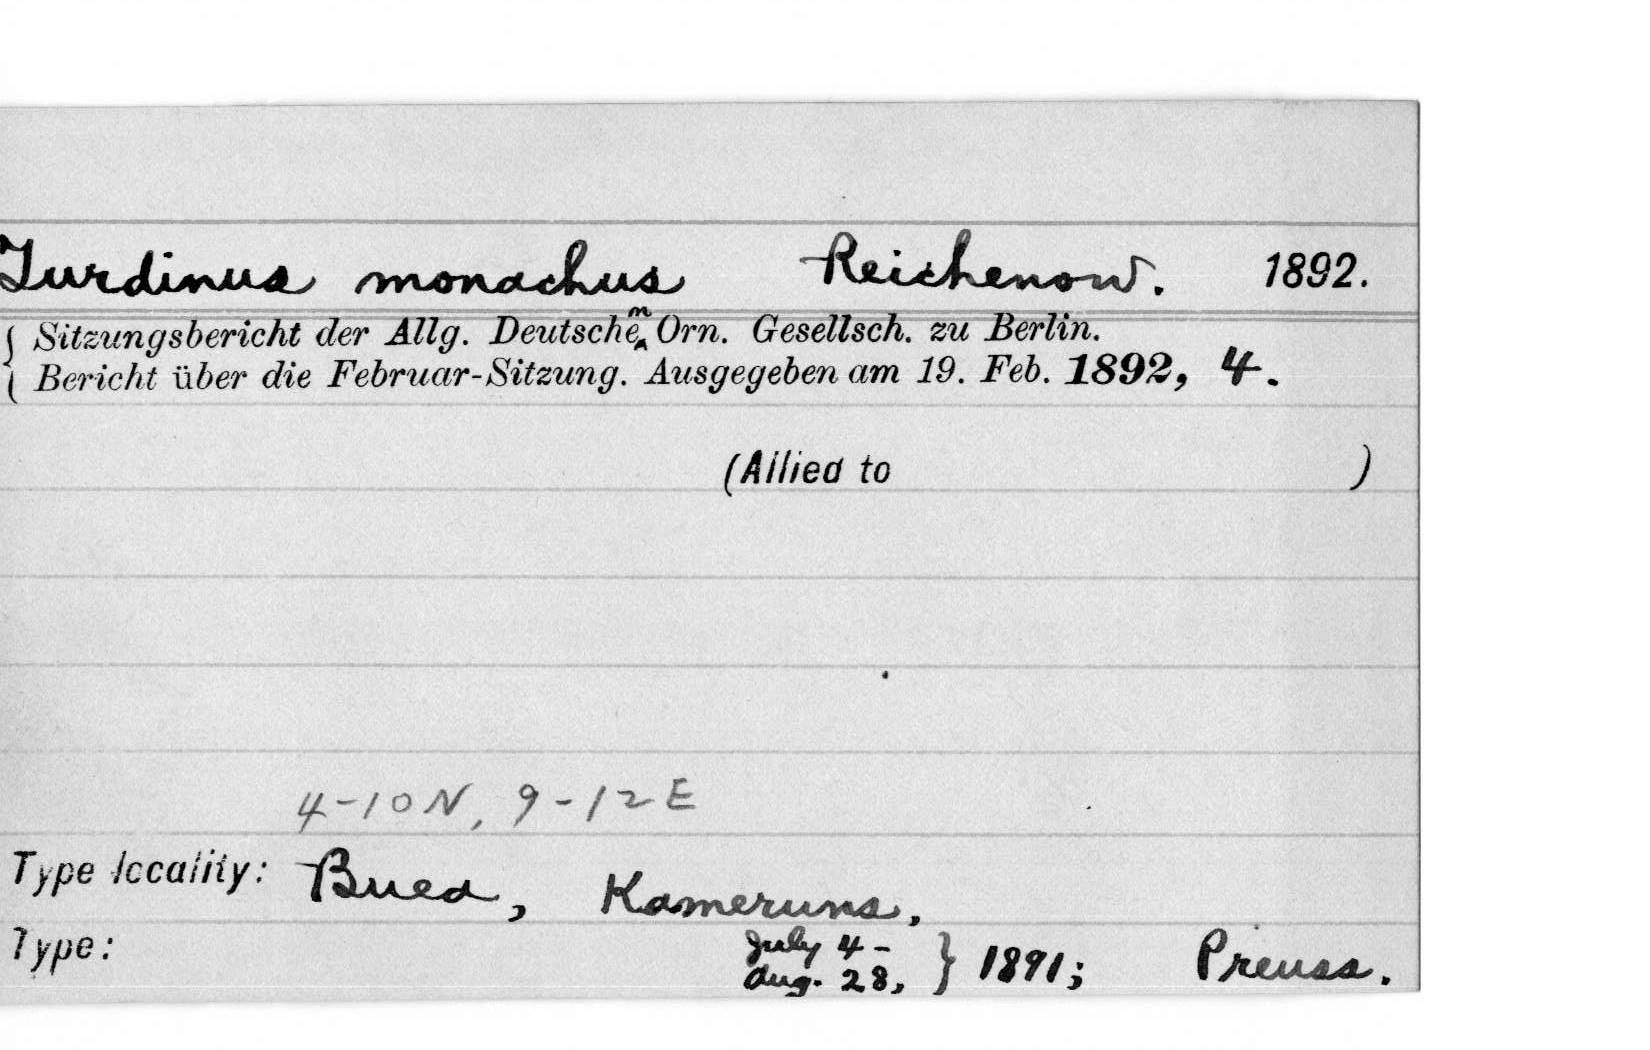 Turdinus monachus Reichenow. 1892.
{ Sitzungsbericht der Allg. Deutschen Orn. Gesellsch. zu Berlin.
Bericht über die Februar-Sitzung. Ausgegeben am 19. Feb. 1892, 4.
(Allied to )
4-10N, 9-12E
Type locality: Buea, Kameruns,
Type: July 4 - Aug. 28, } 1891; Preuss.